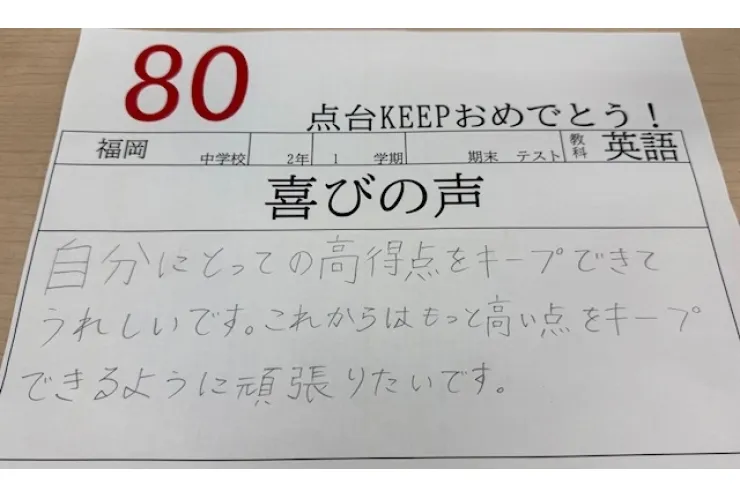 80
点台KEEPおめでとう！
福岡 中学校 2年 1 学期 期末 テスト 教科 英語
喜びの声
自分にとっての高得点をキープできて
うれしいです。これからはもっと高い点をキープ
できるように頑張りたいです。